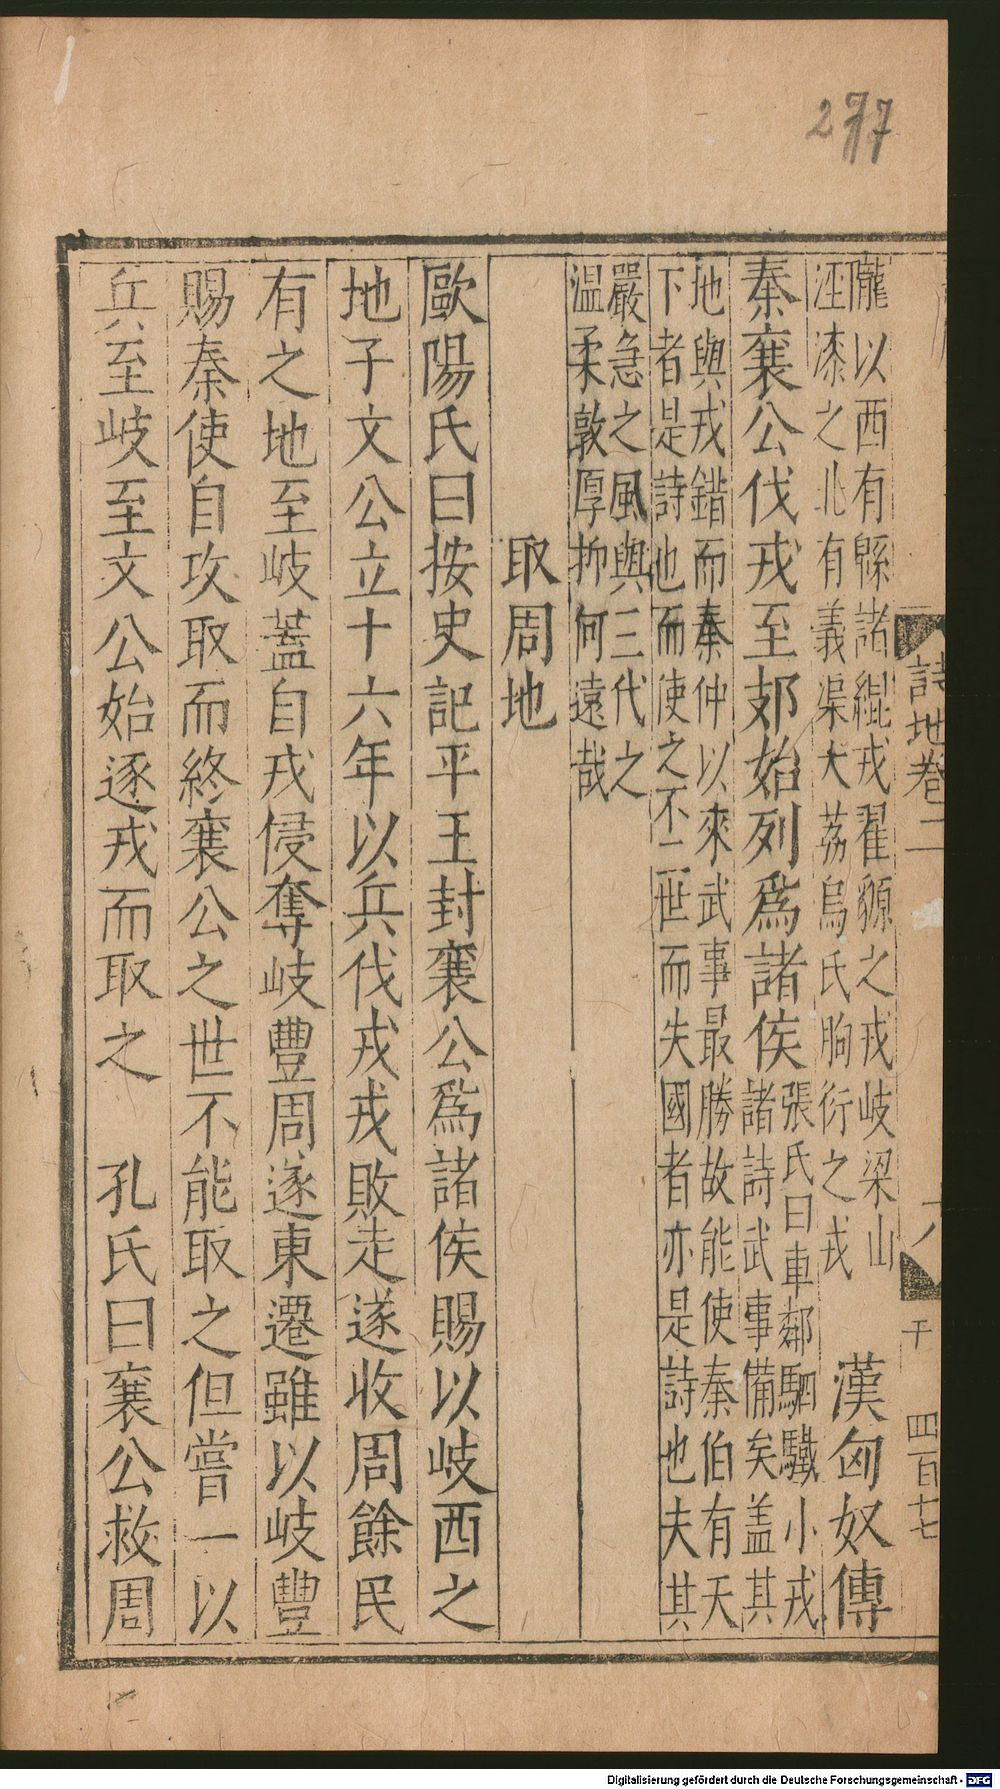 277
隴以西有緜諸緄戎翟䝠之戎岐梁山
涇漆之北有義渠大荔烏氏朐衍之戎
漢匈奴傳
秦襄公伐戎至郊始列爲諸侯
張氏曰車鄰駟驖小戎
諸詩武事備矣盖其
地與戎錯而秦仲以來武事最勝故能使秦伯有天
下者是詩也而使之不二世而失國者亦是詩也夫其
嚴急之風與三代之
温柔敦厚抑何遠哉
取周地
歐陽氏曰按史記平王封襄公爲諸侯賜以岐西之
地子文公立十六年以兵伐戎戎敗走遂收周餘民
有之地至岐蓋自戎侵奪岐豐周遂東遷雖以岐豐
賜秦使自攻取而終襄公之世不能取之但嘗一以
兵至岐至文公始逐戎而取之　孔氏曰襄公救周
詩地卷二
干
四百十七
Digitalisierung gefördert durch die Deutsche Forschungsgemeinschaft - DFG